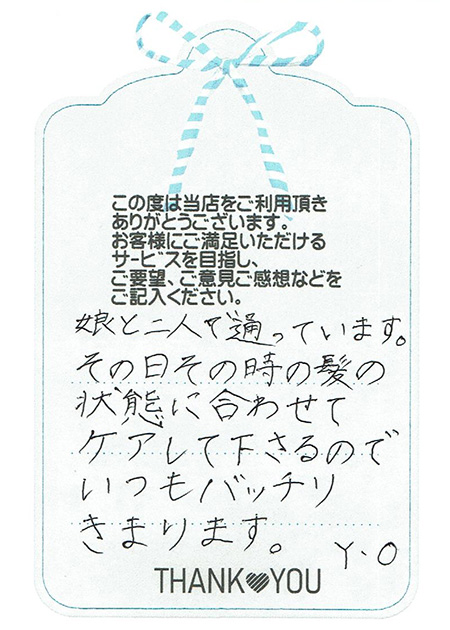 この度は当店をご利用頂き
ありがとうございます。
お客様にご満足いただける
サービスを目指し、
ご要望、ご意見ご感想などを
ご記入ください。
娘と二人で通っています。
その日その時の髪の
状態に合わせて
ケアして下さるので
いつもバッチリ
きまります。 Y・O
THANK♥YOU